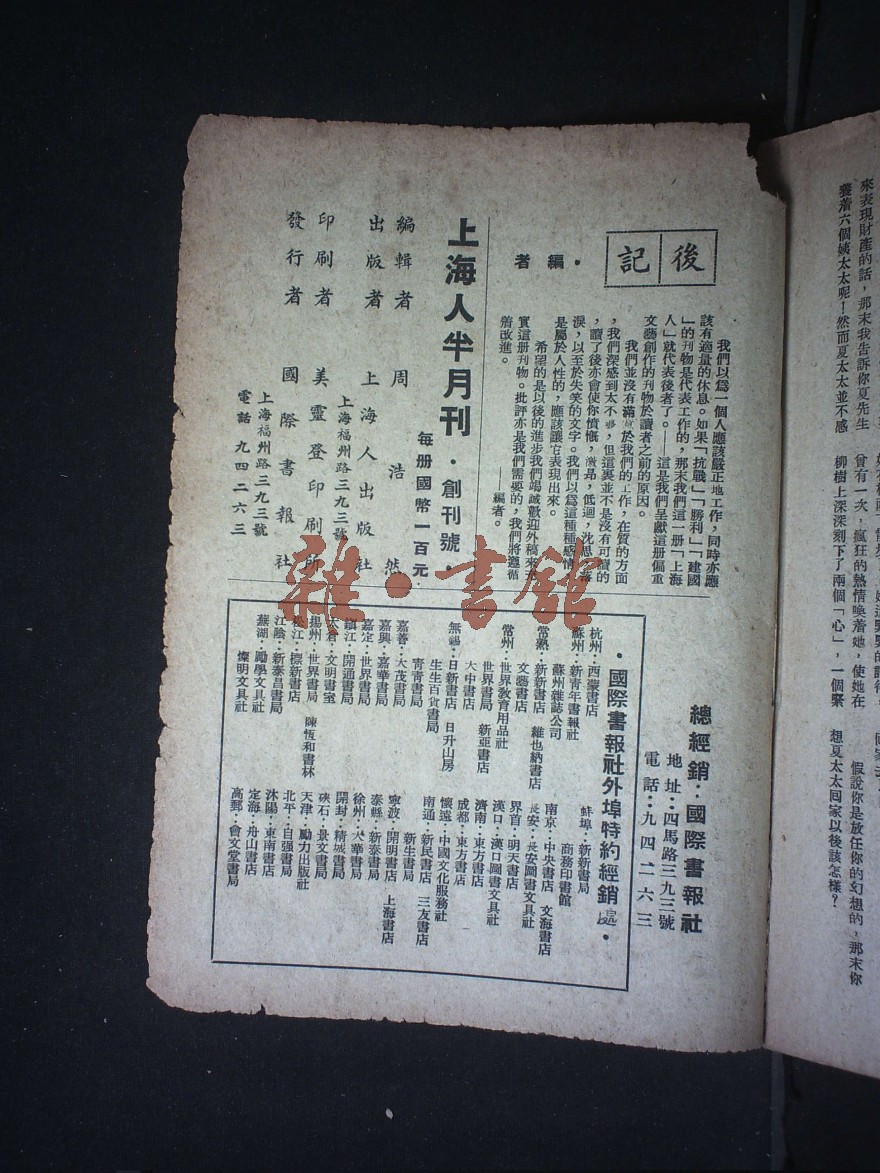 後記
·編者
我們以爲一個人應該嚴正地工作，同時亦應
該有適量的休息。如果「抗戰」「勝利」「建國
」的刊物是代表工作的，那末我們這一册「上海
人」就代表後者了。——這是我們呈獻這册偏重
文藝創作的刊物於讀者之前的原因。
我們並沒有滿於我們的工作，在質的方面
，我們深感到太不够，但這裏並不是沒有可讀的
，讀了後亦會使你憤慨，激昂，低迴，沈思，
淚，以至於失笑的文字。我們以爲這種種感情
是屬於人性的，應該讓它表現出來。
希望的是以後的進步我們竭誠歡迎外稿來
實這册刊物。批評亦是我們需要的，我們將遵循
着改進。
——編者。
上海人半月刊·創刊號·
每册國幣一百元
編輯者 周浩然
出版者 上海人出版社
上海福州路三九三號
印刷者 美靈登印刷所
發行者 國際書報社
上海福州路三九三號
電話 九四二六三
總經銷：國際書報社
地址：四馬路三九三號
電話：九四二六三
·國際書報社外埠特約經銷處·
杭州·西蒙書店
蘇州·新青年書報社
蘇州雜誌公司
常熟·新新書店 維也納書店
文藝書店
常州·世界教育用品社
世界書局 新亞書店
大中書店
無錫·日新書店 日升山房
生生百貨書局
青青書局
嘉善·大茂書局
嘉興·嘉華書局
嘉定·世界書局
鎮江·開通書局
太倉·文明書室
揚州·世界書局 陳恆和書林
松江·標新書店
江陰·新泰昌書局
蕪湖·勵學文具社
燦明文具社
蚌埠·新新書局
商務印書館
南京·中央書店 文海書店
長安·長安圖書文具社
界首·明天書店
漢口·漢口圖書文具社
濟南·東方書店
成都·東方書店
懷遠·中國文化服務社
南通·新民書店 三友書店
新生書局
寧波·開明書店 上海書店
泰縣·新泰書局
徐州·大華書局
開封·精城書局
硤石·景文書局
天津·勵力出版社
北平·自强書局
沐陽·東南書店
定海·舟山書店
高郵·會文堂書局
雜·書館
來表現財產的話，那末我告訴你夏先生
養着六個姨太太呢！然而夏太太並不感
曾有一次，瘋狂的熱情喚着她，使她在
柳樹上深深刻下了兩個「心」，一個緊
假說你是放任你的幻想的，那末你
想夏太太回家以後該怎樣？